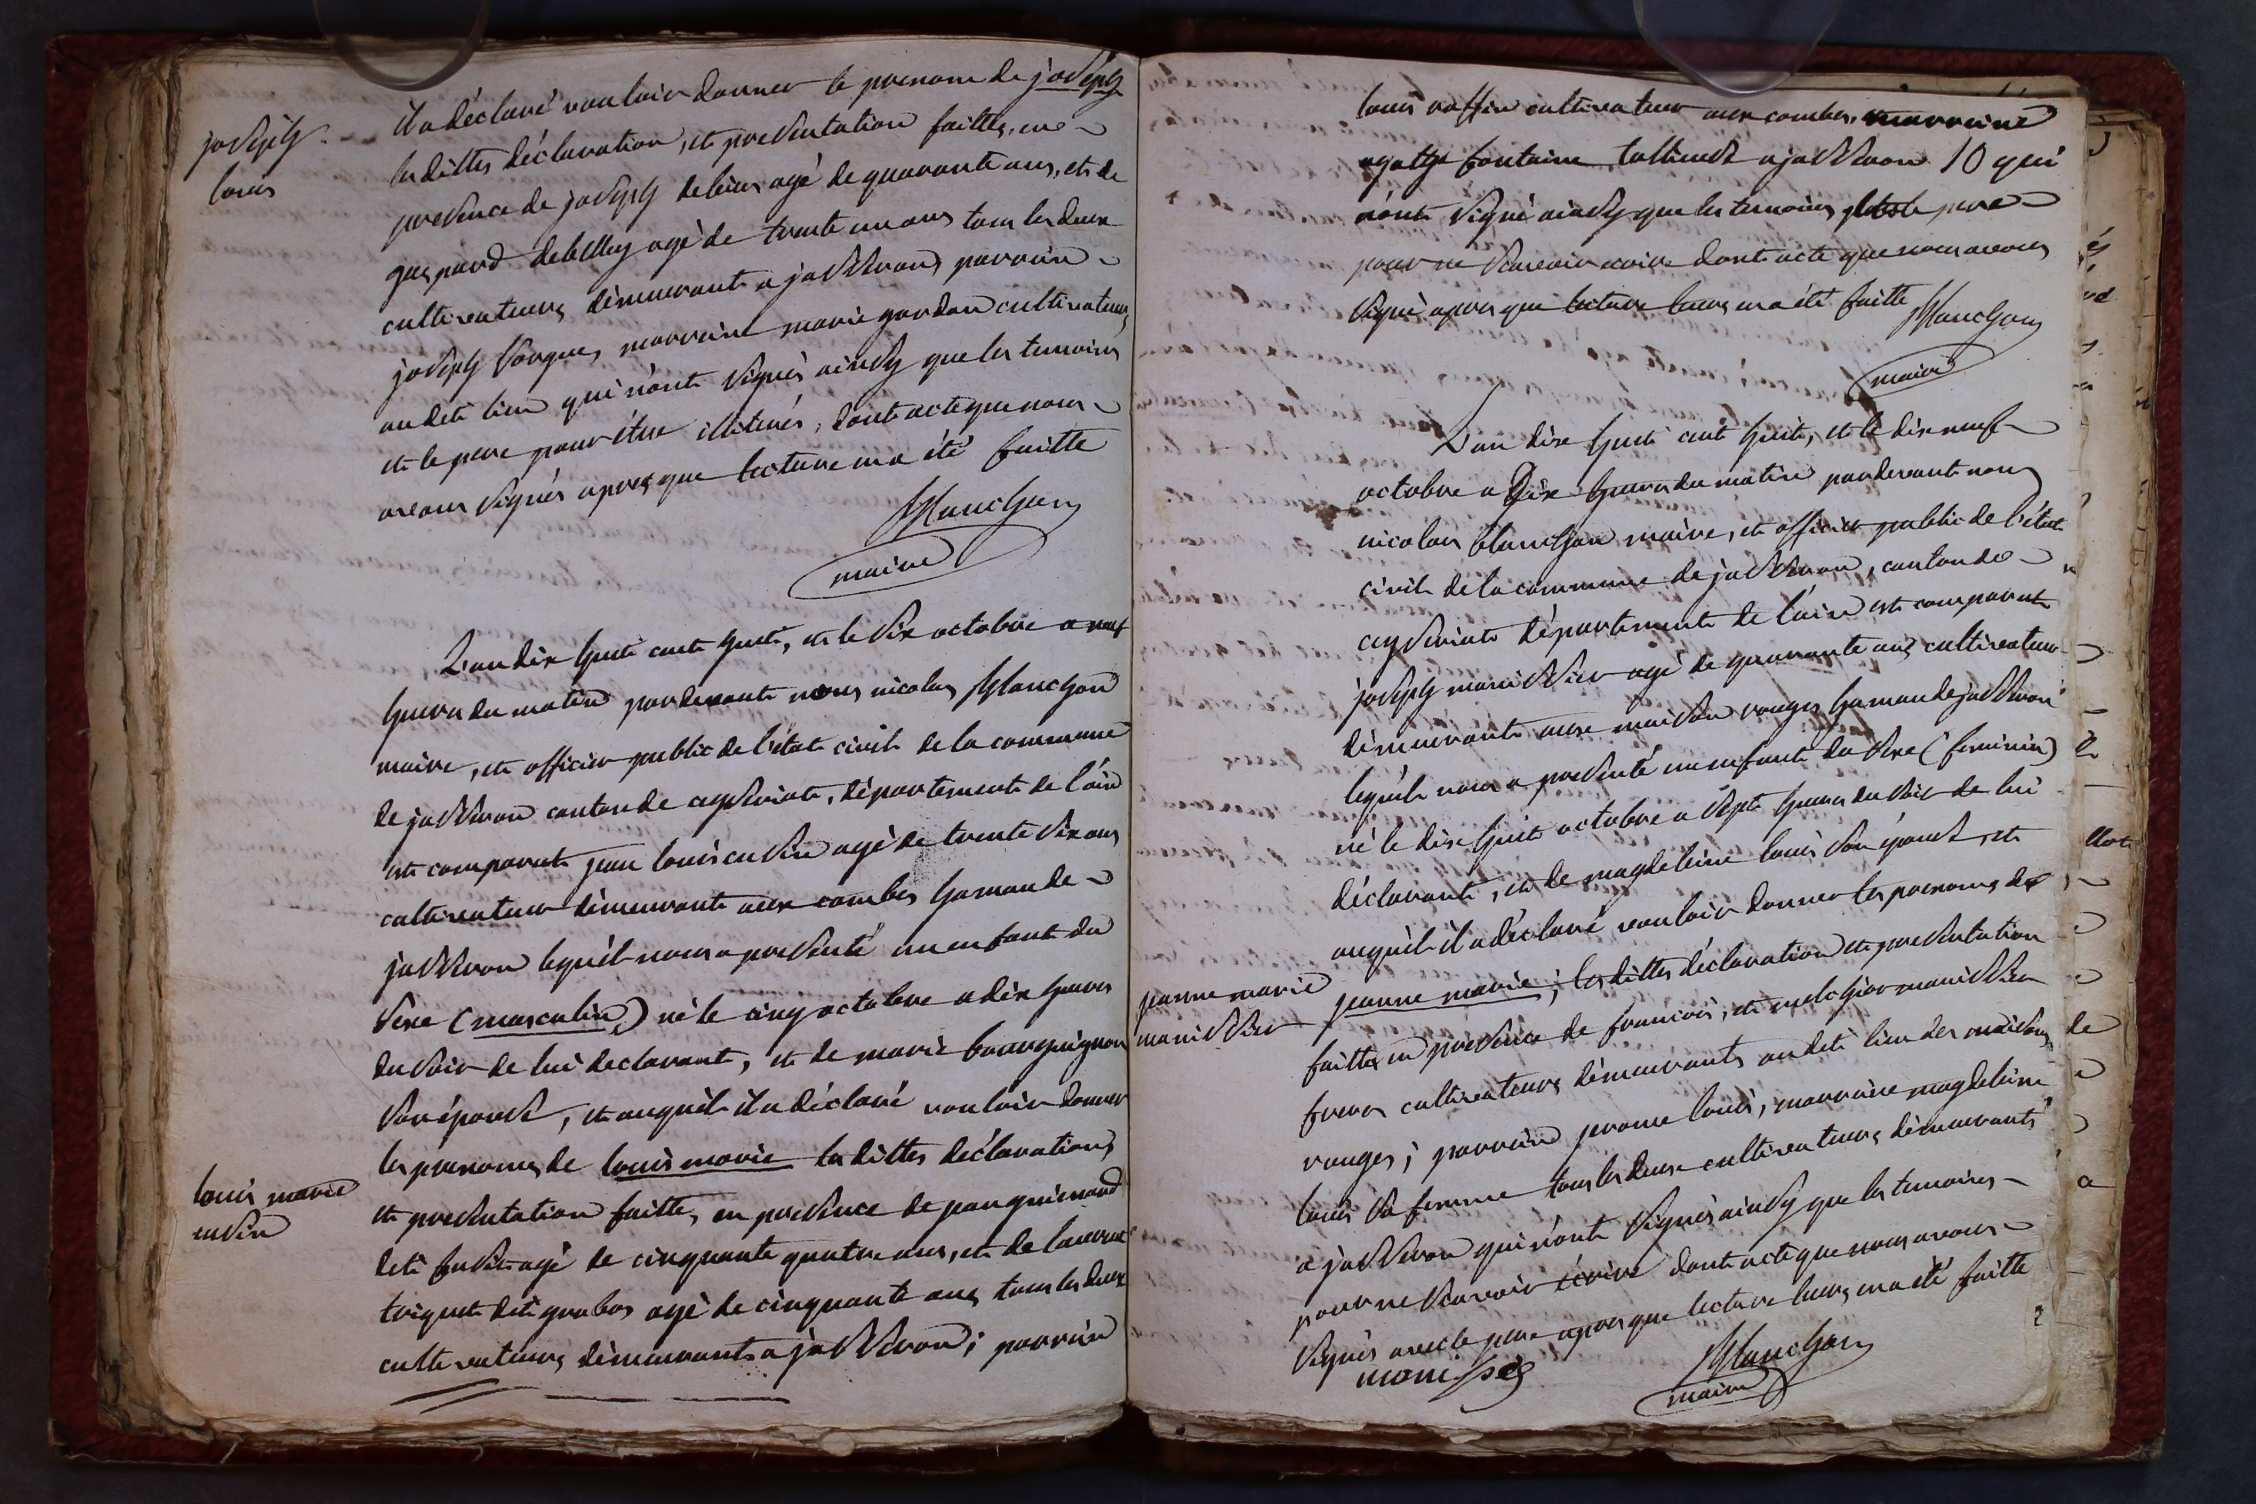 joseph
louis
il a déclaré vouloir donner le prenom de joseph
les dittes déclaration, et presentation faittes, en
presence de joseph debias agé de quarante ans, et de
gaspard debelley agé de trente un ans tous les deux
cultivateurs démeurants a jasseron, parrain
joseph vorgue, marraine marie gordon cultivateurs
au dit lieu qui n'ont signés ainsy que les temoins
et le pere pour être illiterés, dont acte que nous
avons signés apres que lecture en a été faitte
Blanchon
maire
L'an dix huit cent huit, et le six octobre a neuf
heures du matin pardevant nous nicolas Blanchon
maire, et officier public de l'état civil de la commune
de jasseron canton de ceyseriat, département de l'ain
est comparut jean louis cusin agé de trente six ans
cultivateur démeurant aux combes hamau de
jasseron lequél nous a presenté un enfant du
sexe (masculin) né le cinq octobre a dix heures
du soir de lui declarant, et de marie bourguignon
son épouse, et auquél il a déclaré vouloir donner
les prenoms de louis marie les dittes déclarations
louis marie
cusin
et presentation faitte, en presence de jean guienard
dit agé de cinquante quatre ans, et de laurent
triquet dit grabos agé de cinquante ans tous les deux
cultivateurs démeurants a jasseron; parrain
louis raffin cultivateur aux combes, marraine
agathe fontaine a jasseron 10 qui
n'ont signé ainsy que les temoins et le pere
pour ne scavoir ecrire dont acte que nous avons
signé apres que lecture leurs en a été faitte
Blanchon
maire
L'an dix huit cent huit, et le dix neuf
octobre a Dix heures du matin pardevant nous
nicolas blanchon maire, et officier public de l'état
civil de la commune de jasseron, canton de
ceyseriat département de l'ain est comparut
joseph manissier agé de quarante ans cultivateur
démeurant aux maison rouges hamau de jasseron
lequél nous a presenté un enfant du sexe (feminin)
né le dix huit octobre a sept heures du soir de lui
déclarant, et de magdeleine louis son épouse, et
auquél il a déclaré vouloir donner les prenoms de
jeanne marie
manissier
jeanne marie; les dittes déclaration et presentation
faittes en presence de francois, et melchior manissier
freres cultivateurs démeurants au dit lieu des maisons
rouges; parrain jerome louis, marraine magdeleine
louis sa femme tous les deux cultivateurs démeurants
a jasseron qui n'ont signés ainsy que les temoins
pour ne scavoir écrire dont acte que nous avons
signés avec le pere apres que lecture leurs en a été faitte
Blanchon
maire